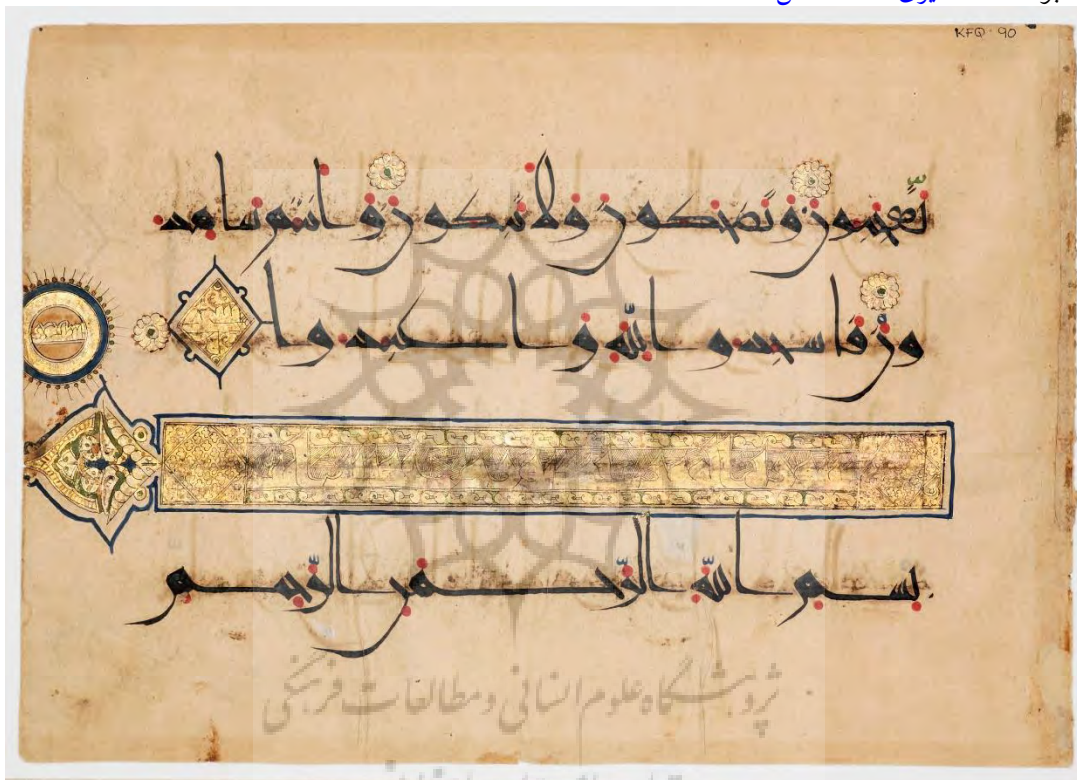 KFQ 90
تعجبون وتضحكون ولا تبكون وانتم سامد
ون فاسجدوا لله واعبدوا
بسم الله الرحمن الرحيم
پژوهشگاه علوم انسانی و مطالعات فرهنگی